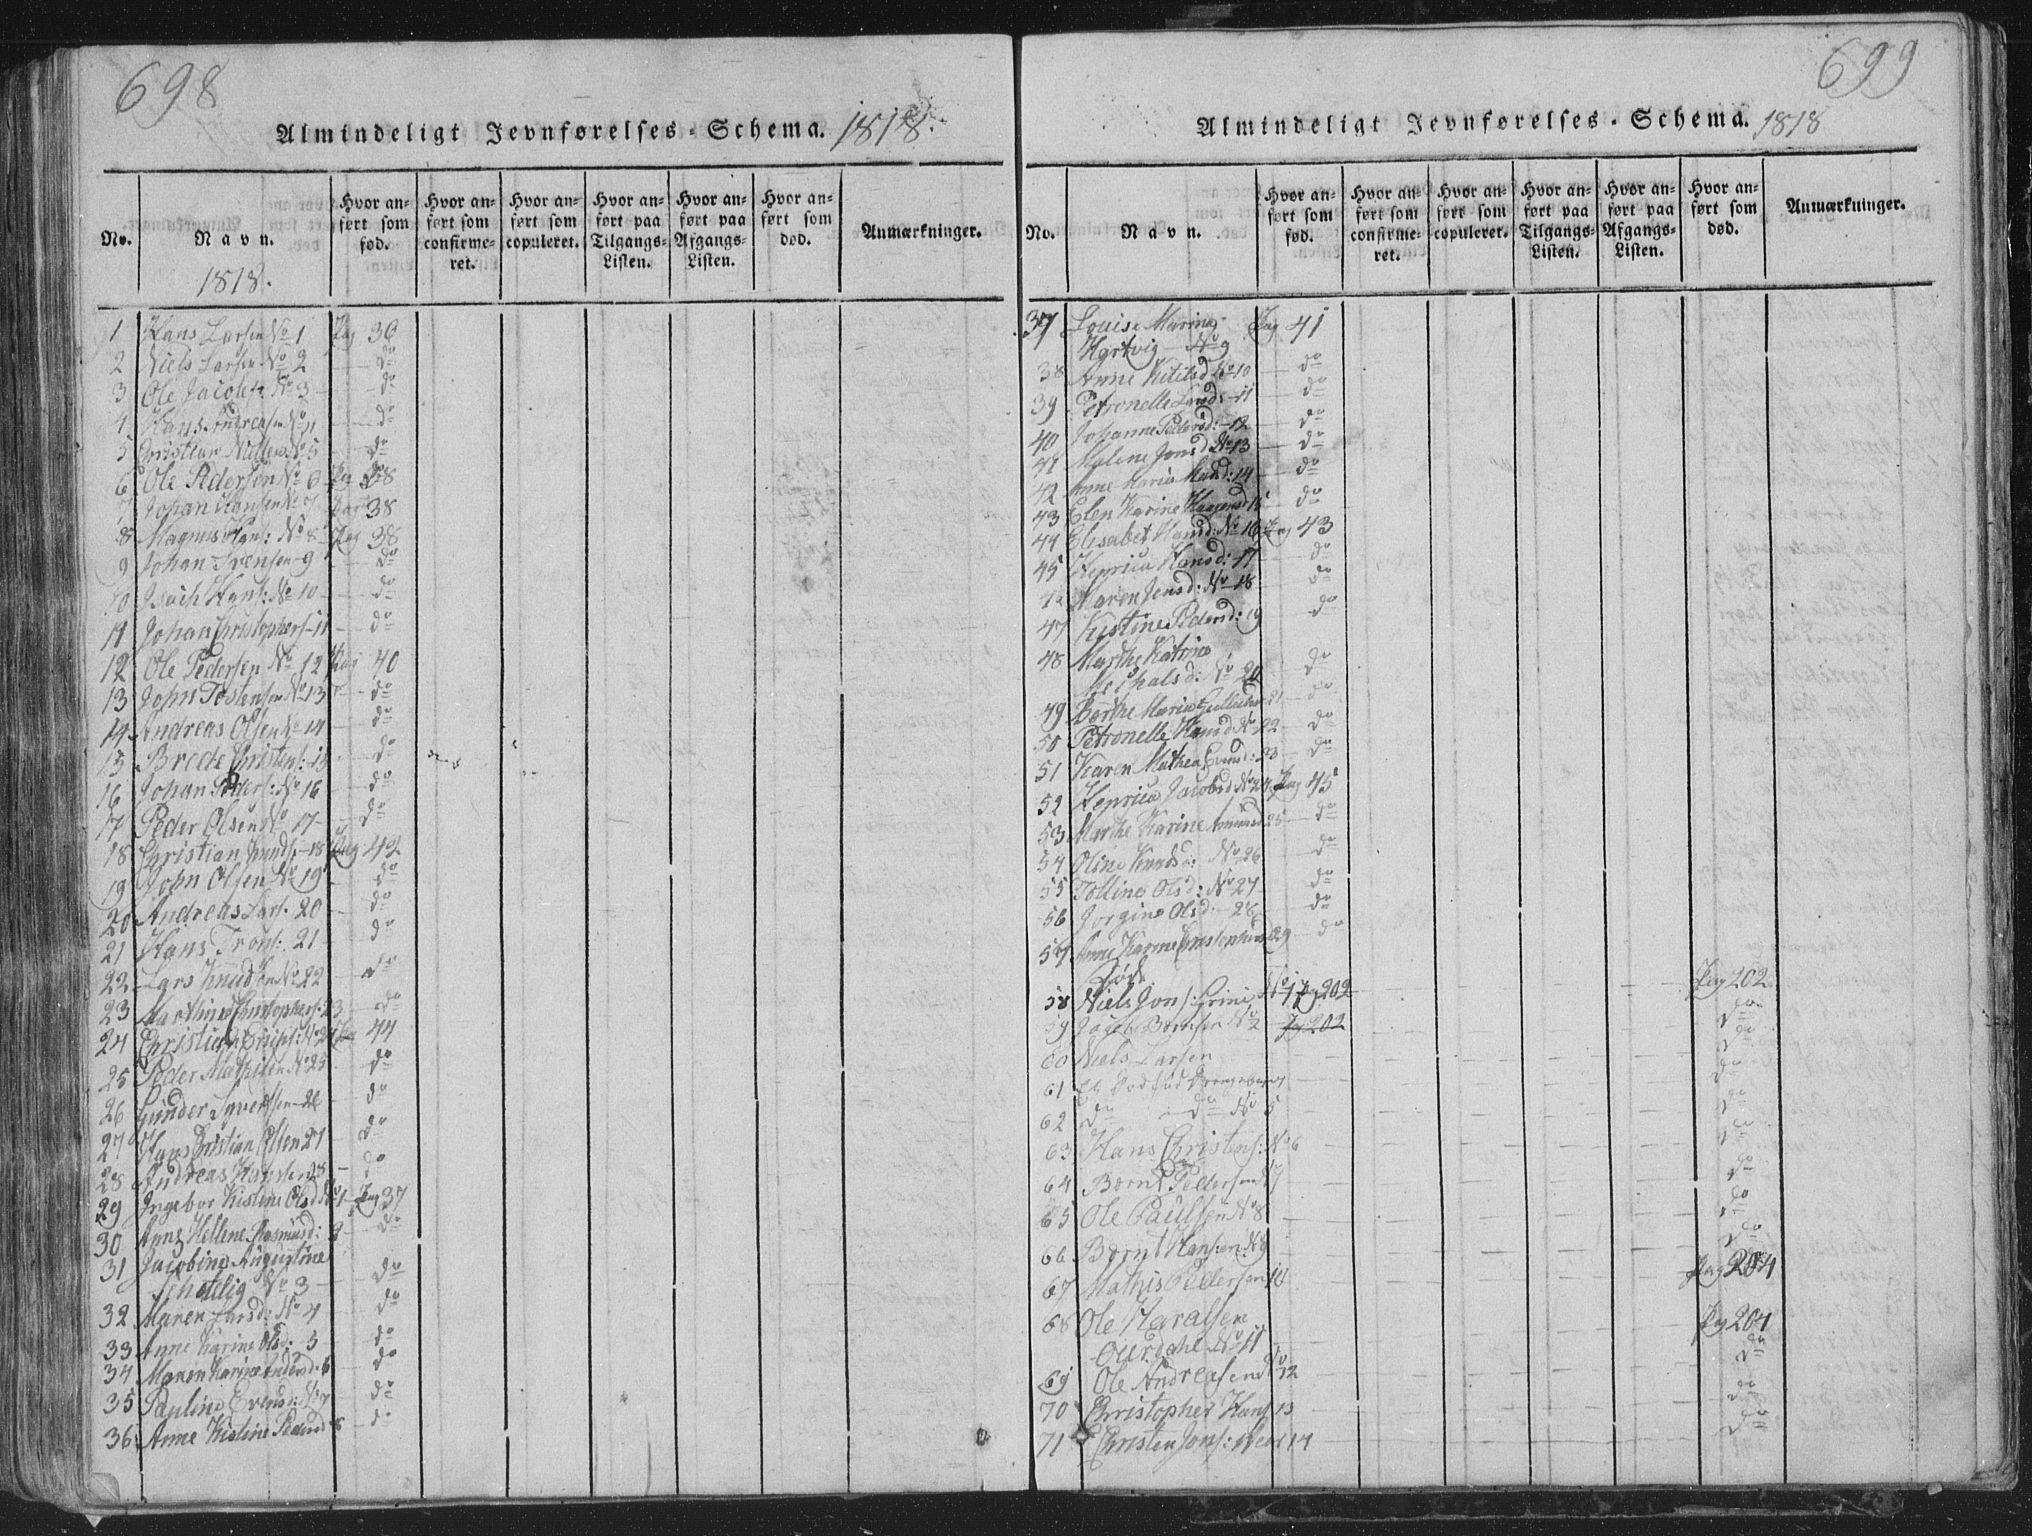 698
Almindeligt Jevnførelses-Schema. 1818.
No.
Navn.
1818.
Hvor anført som fød.
Hvor anført som confirmeret.
Hvor anført som copuleret.
Hvor anført paa Tilgangs-Listen.
Hvor anført paa Afgangs-Listen.
Hvor anført som død.
Anmærkninger.
1 Hans Larsen No 1 Pag 36
2 Niels Larsen No 2 do
3 Ole Jacobs: No 3 do
4 Hans Andreasen No 4 do
5 Christian Nilsen No 5 do
6 Ole Pedersen No 6 Pag 38
7 Johan Hansen No 7 Pag 38
8 Magnus Hans: No 8 Pag 38
9 Johan Svensen 9 do
10 Isach Hans: No 10 do
11 Johan Christophers 11 do
12 Ole Pedersen No 12 Pag 40
13 John Tostensen No 13 do
14 Andreas Olsen No 14 do
15 Brede Christens: 15 do
16 Johan Peders: No 16 do
17 Peder Olsen No 17 do
18 Christian Knuds 18 Pag 42
19 John Olsen No 19 do
20 Andreas Lars. 20 do
21 Hans Trons: 21 do
22 Lars Knudsen No 22 do
23 Marthin Christophers. 23 do
24 Christian No 24 Pag 44
25 Peder Mathisen No 25 do
26 Gunder Sivertsen 26 do
27 Hans Christian Olsen 27 do
28 Andreas Hansen 28 do
29 Ingebor Kistine Olsd No 1 Pag 37
30 Anne Hellene Rasmusd: 2 do
31 Jacobine Augustine
Schellig No 3 do
32 Maren Larsd: No 4 do
33 Anne Karine Olsd: 5 do
34 Maren Karine Andersd. 6 do
35 Pauline Evensd: No 7 do
36 Anne Kistine Pedersd 8 do
699
Almindeligt Jevnførelses-Schema. 1818
No.
Navn.
Hvor anført som fød.
Hvor anført som confirmeret.
Hvor anført som copuleret.
Hvor anført paa Tilgangs-Listen.
Hvor anført paa Afgangs-Listen.
Hvor anført som død.
Anmærkninger.
37 Louise Marine Pag 41
Hartvig No 9
38 Anne Kitilsd No 10 do
39 Petronelle Larsd: 11 do
40 Johanne Pedersd: 12 do
41 Malene Jonsd No 13 do
42 Anne Maria 14 do
43 Elen Karine 15 do
44 Elisabet Hansd: No 16 Pag 43
45 Henrica Hansd: 17 do
Maren Jensd: No 18 do
47 Kistine Pedersd: 19 do
48 Marthe Katrine
Meshalsd: No 20 do
49 Berthe Maria 21 do
50 Petronelle Hansd No 22 do
51 Karen Mathea Evensd: 23 do
52 Henrica Jacobsd No 24 Pag 45
53 Marthe Karine Amundsd 25 do
54 Oline Knudsd: No 26 do
55 Tolline Olsd: No 27 do
56 Jorgine Olsd. 28 do
57 Anne Karine Christophersd 29 do
Døde
58 Niels Jons: Grini No 1 Pag 202 Pag 202
59 Jacob No 2 Pag 202 do
60 Niels Larsen do
61 Et Dødfød Drengebarn do
62 do do No 5 do
63 Hans Christens: No 6 do
64 Bernt Pedersen No 7 do
65 Ole Paulsen No 8 do
66 Bernt Hansen No 9 do
67 Mathis Pedersen 10 Pag 204
68 Ole Haralsen
Ourdahl No 11 Pag 204
69 Ole Andreasen No 12 do
70 Christopher Hans 13 do
71 Christen Jons: 14 do